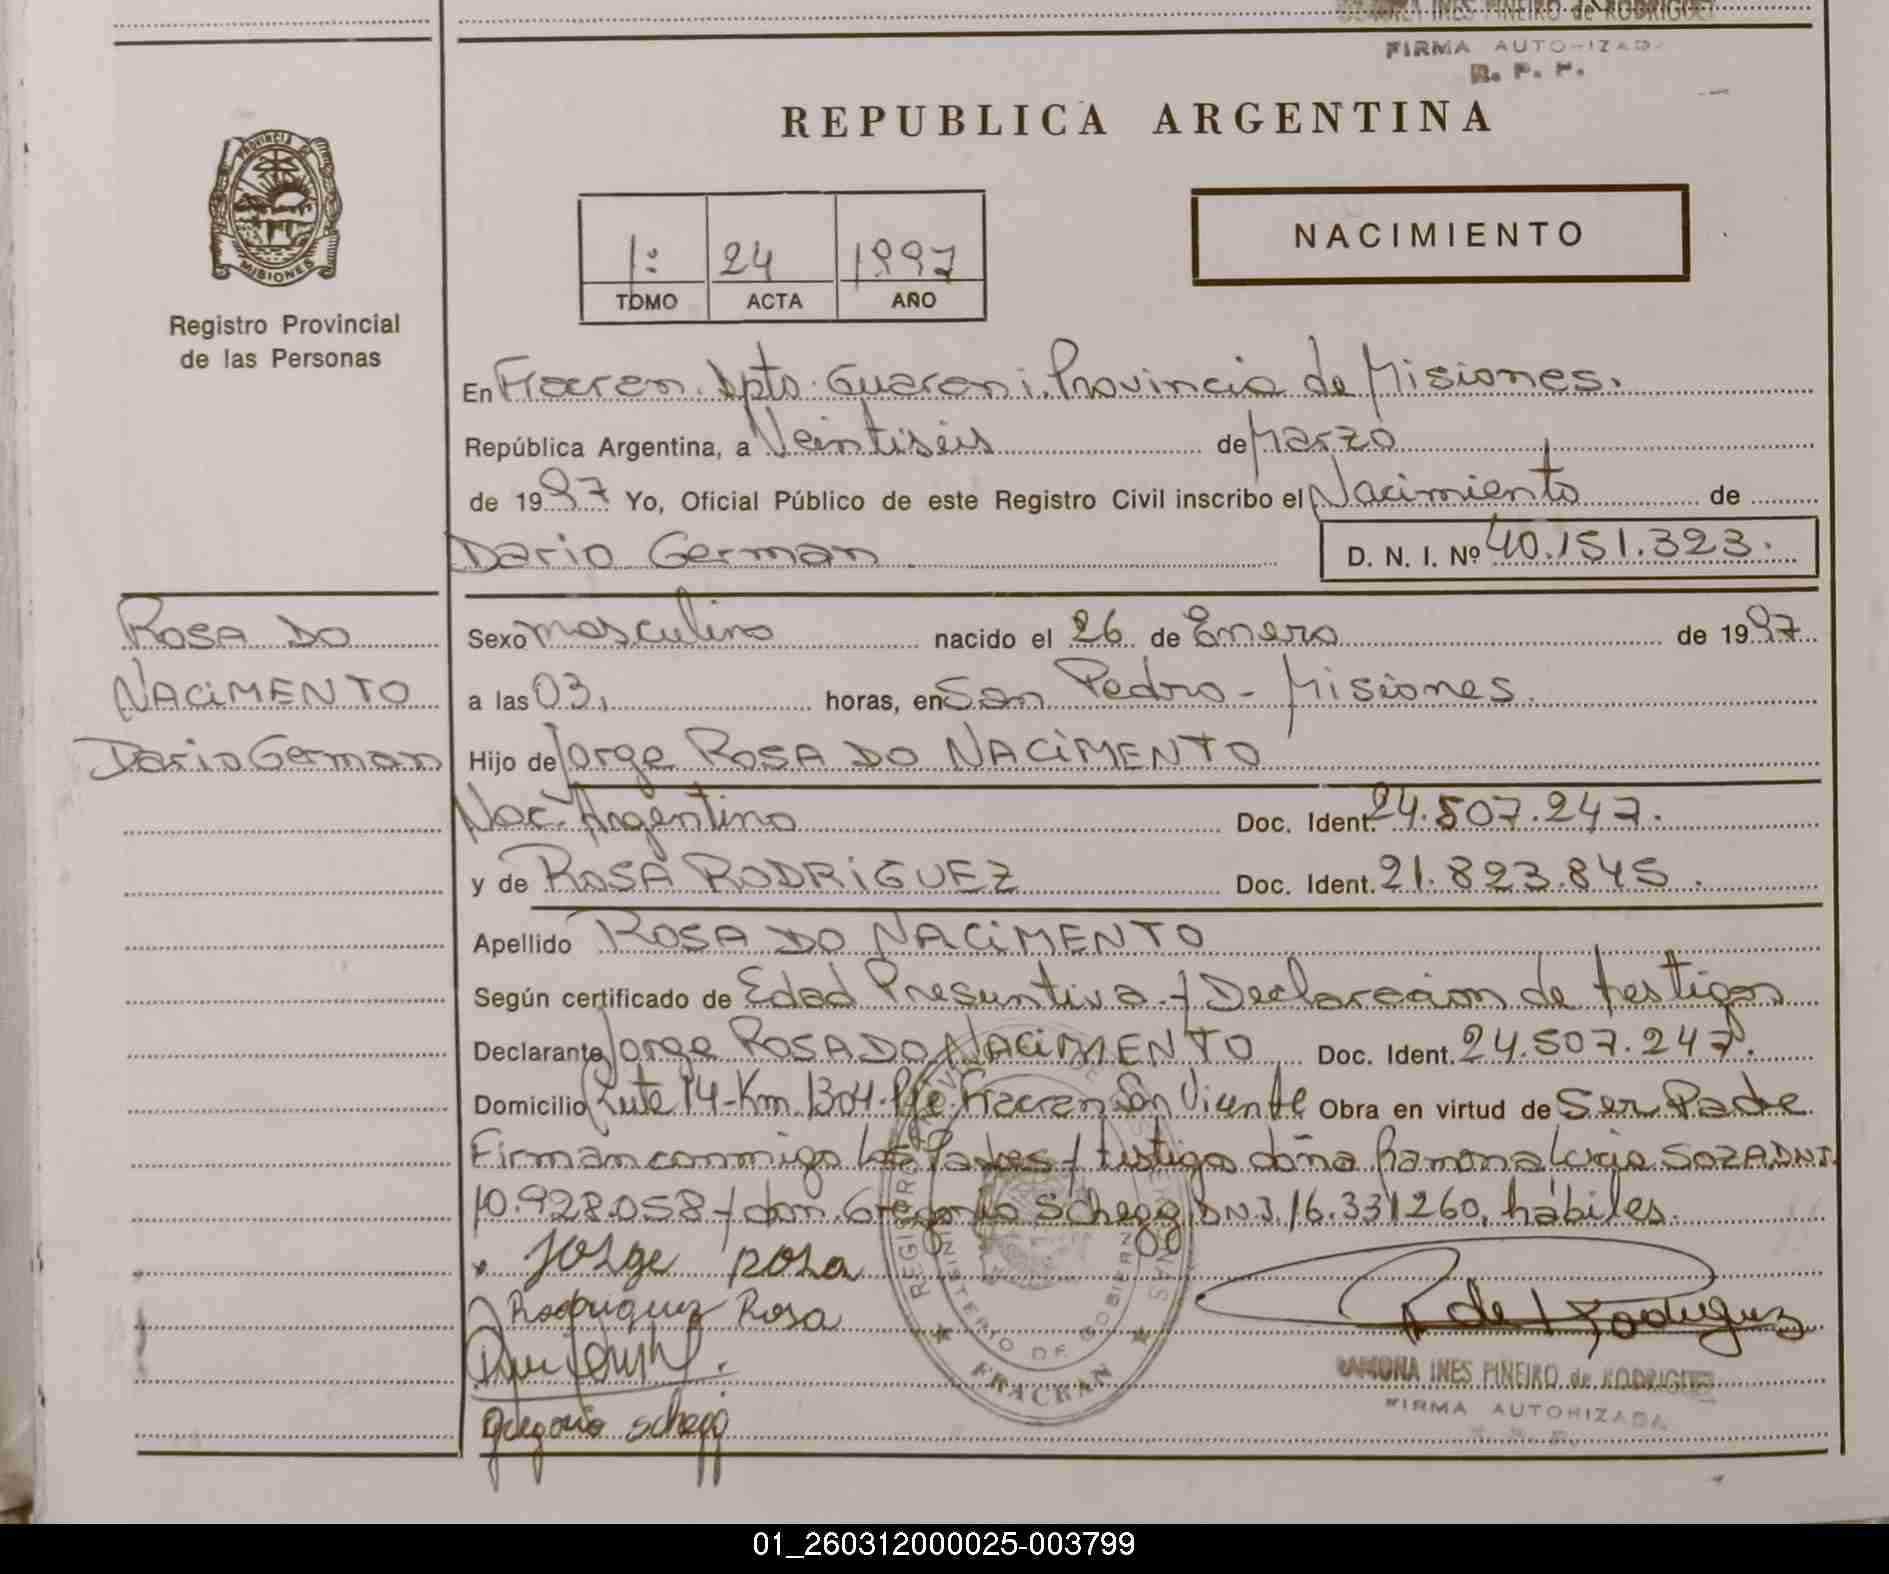 RAMONA INES PINEIRO de RODRIGUEZ
FIRMA AUTORIZADA
R. P. P.
REPUBLICA ARGENTINA
PROVINCIA DE
MISIONES
Registro Provincial
de las Personas
1: 24 1997
TOMO ACTA AÑO
NACIMIENTO
En Fracran. Dpto. Guarani. Provincia de Misiones.
República Argentina, a Veintiséis de Marzo
de 1997 Yo, Oficial Público de este Registro Civil inscribo el Nacimiento de
Dario German D. N. I. Nº 40.151.323.
ROSA DO
NACIMENTO
Dario German
Sexo masculino nacido el 26 de Enero de 1997
a las 03, horas, en San Pedro - Misiones.
Hijo de Jorge ROSA DO NACIMENTO
Nac. Argentino Doc. Ident. 24.507.247.
y de ROSA RODRIGUEZ Doc. Ident. 21.823.845.
Apellido ROSA DO NACIMENTO
Según certificado de Edad Presuntiva y Declaracion de testigos
Declarante Jorge ROSA DO NACIMENTO Doc. Ident. 24.507.247.
Domicilio Ruta 14-Km 1304. Pje. Fracran San Vicente Obra en virtud de Ser Padre
Firman conmigo los Padres y testigos doña Ramona Lucia SOZA DNI.
10.928.058 y don Gregorio Schegg DNI 16.331260, hábiles.
JORGE ROSA
Rodriguez Rosa
gregorio schegg
R de Rodriguez
RAMONA INES PINEIRO de RODRIGUEZ
FIRMA AUTORIZADA
MINISTERIO DE GOBIERNO
FRACRAN
01_260312000025-003799